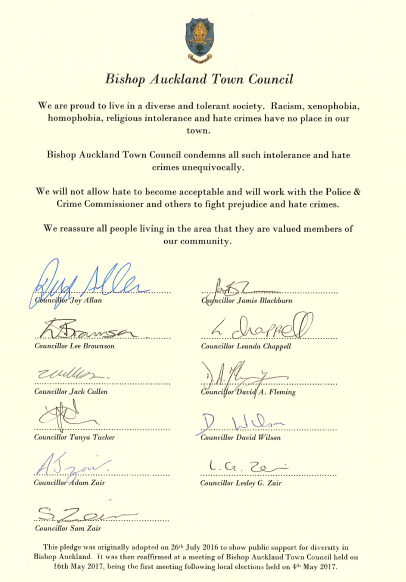 Bishop Auckland Town Council
We are proud to live in a diverse and tolerant society. Racism, xenophobia,
homophobia, religious intolerance and hate crimes have no place in our
town.
Bishop Auckland Town Council condemns all such intolerance and hate
crimes unequivocally.
We will not allow hate to become acceptable and will work with the Police &
Crime Commissioner and others to fight prejudice and hate crimes.
We reassure all people living in the area that they are valued members of
our community.
Allan
Councillor Joy Allan Councillor Jamie Blackburn
L Brownson L Chappell
Councillor Lee Brownson Councillor Leanda Chappell
Councillor Jack Cullen Councillor David A. Fleming
D Wilson
Councillor Tanya Tucker Councillor David Wilson
A Zair L. G. Zair
Councillor Adam Zair Councillor Lesley G. Zair
S Zair
Councillor Sam Zair
This pledge was originally adopted on 26th July 2016 to show public support for diversity in
Bishop Auckland. It was then reaffirmed at a meeting of Bishop Auckland Town Council held on
16th May 2017, being the first meeting following local elections held on 4th May 2017.